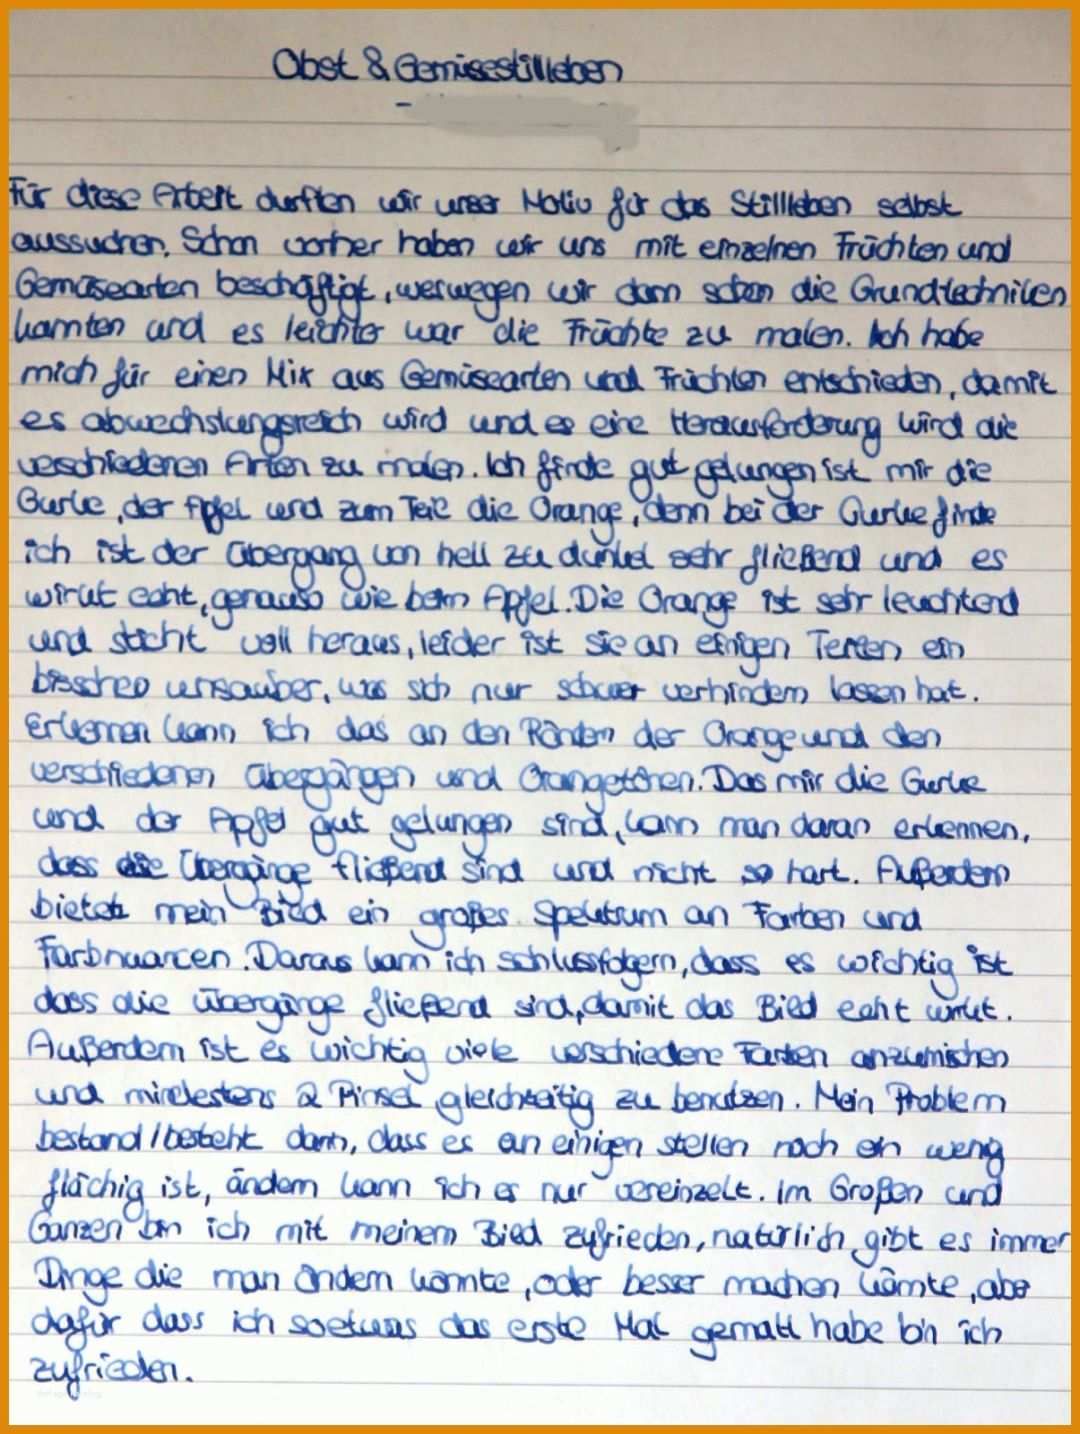 Obst & Gemüsestillleben
Für diese Arbeit durften wir unser Motiv für das Stillleben selbst
aussuchen. Schon vorher haben wir uns mit einzelnen Früchten und
Gemüsearten beschäftigt, weswegen wir dann schon die Grundtechniken
kannten und es leichter war die Früchte zu malen. Ich habe
mich für einen Mix aus Gemüsearten und Früchten entschieden, damit
es abwechslungsreich wird und es eine Herausforderung wird die
verschiedenen Arten zu malen. Ich finde gut gelungen ist mir die
Gurke, der Apfel und zum Teil die Orange, denn bei der Gurke finde
ich ist der Übergang von hell zu dunkel sehr fließend und es
wirkt echt, genauso wie beim Apfel. Die Orange ist sehr leuchtend
und sticht voll heraus, leider ist sie an einigen Stellen ein
bisschen unsauber, was sich nur schwer verhindern lassen hat.
Erkennen kann ich das an den Rändern der Orange und den
verschiedenen Übergängen und Orangetönen. Das mir die Gurke
und der Apfel gut gelungen sind, kann man daran erkennen,
dass die Übergänge fließend sind und nicht so hart. Außerdem
bietet mein Bild ein großes Spektrum an Farben und
Farbnuancen. Daraus kann ich schlussfolgern, dass es wichtig ist
dass die Übergänge fließend sind, damit das Bild echt wirkt.
Außerdem ist es wichtig viele verschiedene Farben anzumischen
und mindestens 2 Pinsel gleichzeitig zu benutzen. Mein Problem
bestand/besteht darin, dass es an einigen stellen noch ein wenig
flächig ist, ändern kann ich es nur vereinzelt. Im Großen und
Ganzen bin ich mit meinem Bild zufrieden, natürlich gibt es immer
Dinge die man ändern könnte, oder besser machen könnte, aber
dafür dass ich soetwas das erste Mal gemalt habe bin ich
zufrieden.